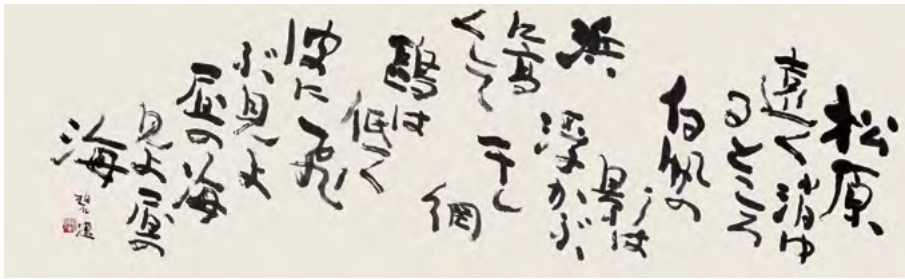 松原
遠く消ゆ
るところ
白帆の
影は
浮かぶ
干し
網
浜
に高
くして
鴎は
低く
波に飛
ぶ見よ
昼の海
見よ昼の
海